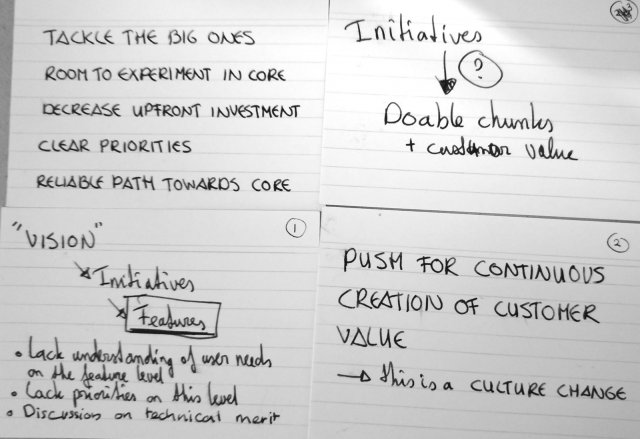 TACKLE THE BIG ONES
ROOM TO EXPERIMENT IN CORE
DECREASE UPFRONT INVESTMENT
CLEAR PRIORITIES
RELIABLE PATH TOWARDS CORE
Initiatives
?
Doable chunks
+ customer value
"VISION"
1
Initiatives
Features
• Lack understanding of user needs
on the feature level
• Lack priorities on this level
• Discussion on technical merit
2
PUSH FOR CONTINUOUS
CREATION OF CUSTOMER
VALUE
→ this is a CULTURE CHANGE